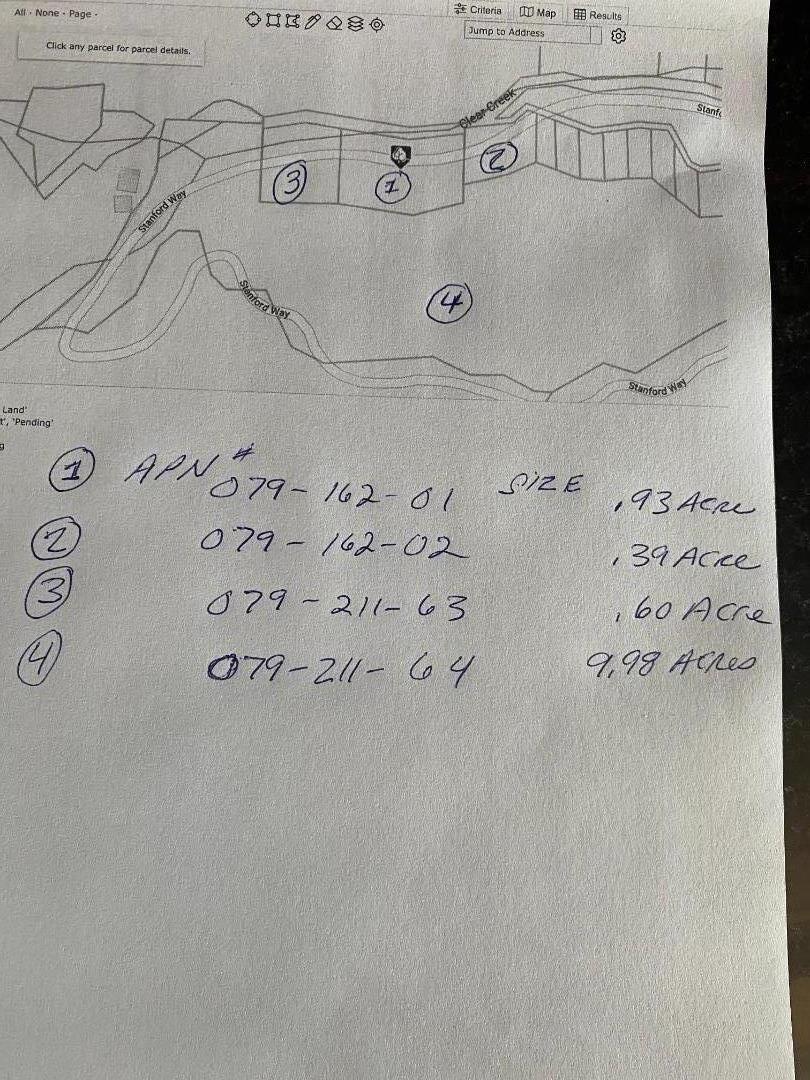 All - None - Page -
Criteria Map Results
Jump to Address
Click any parcel for parcel details.
Clear Creek
Stanf
3
1
2
Stanford Way
Stanford Way
4
Stanford Way
Land'
t', 'Pending'
g
1 APN # 079-162-01 SIZE .93 Acre
2 079-162-02 .39 Acre
3 079-211-63 .60 Acre
4 079-211-64 9.98 Acres